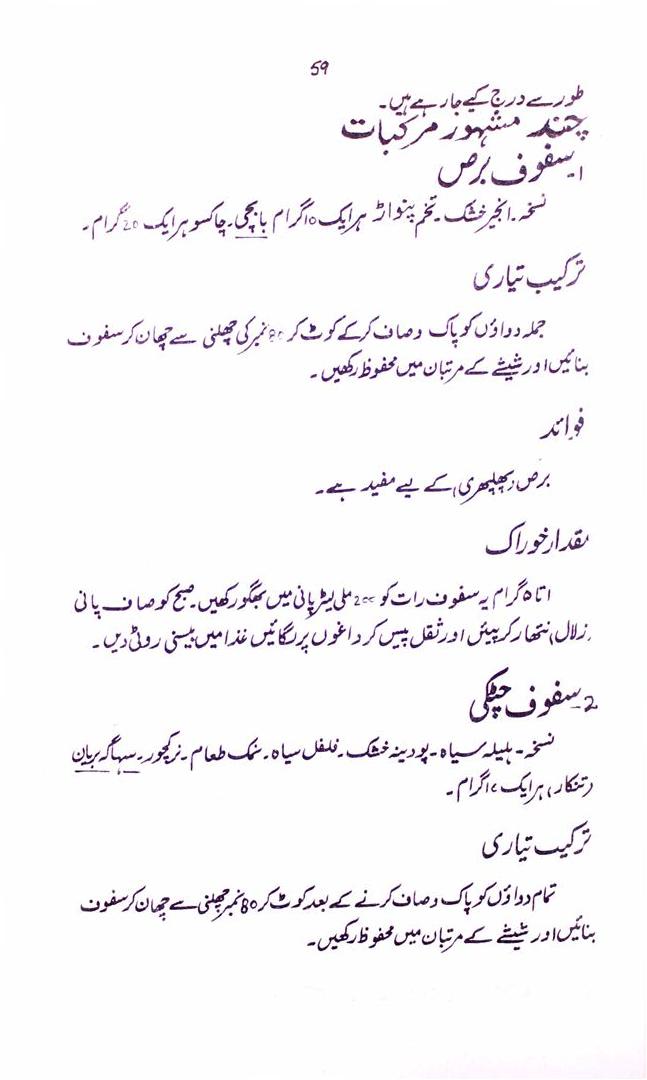 59
طور سے درج کیے جا رہے ہیں۔
چند مشہور مرکبات
1۔ سفوف برص
نسخہ۔ انجیر خشک۔ تخم پنواڑ ہر ایک 10 گرام بابچی۔ چاکسو ہر ایک 20 گرام۔
ترکیب تیاری
جملہ دواؤں کو پاک و صاف کر کے کوٹ کر 80 نمبر کی چھلنی سے چھان کر سفوف
بنائیں اور شیشے کے مرتبان میں محفوظ رکھیں۔
فوائد
برص (پھلبہری) کے لیے مفید ہے۔
مقدار خوراک
5 تا 10 گرام یہ سفوف رات کو 200 ملی لیٹر پانی میں بھگو رکھیں۔ صبح کو صاف پانی
(زلال) نتھار کر پیئں اور ثفل پیس کر داغوں پر لگائیں غذا میں بیسنی روٹی دیں۔
2۔ سفوف چٹکی
نسخہ۔ ہلیلہ سیاہ۔ پودینہ خشک۔ فلفل سیاہ۔ نمک طعام۔ نرکچور۔ سہاگہ بریاں
(تنکار) ہر ایک گرام۔
ترکیب تیاری
تمام دواؤں کو پاک و صاف کرنے کے بعد کوٹ کر 80 نمبر چھلنی سے چھان کر سفوف
بنائیں اور شیشے کے مرتبان میں محفوظ رکھیں۔